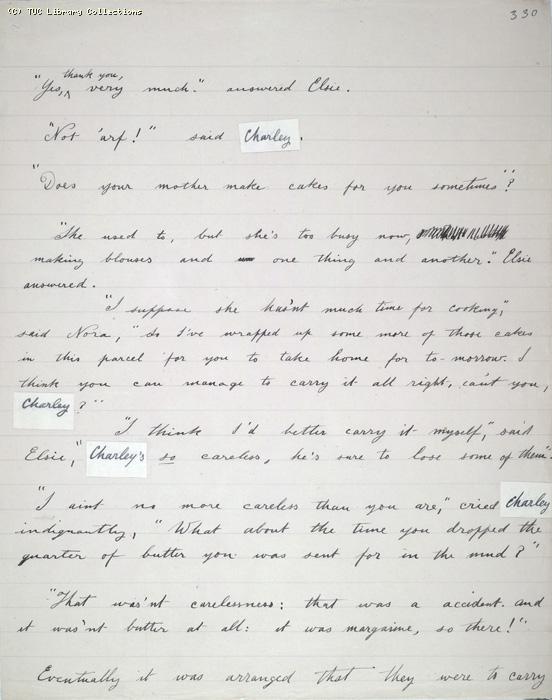 (C) TUC Library Collections
330
thank you,
"Yes, ^ very much." answered Elsie.
"Not 'arf!" said Charley.
"Does your mother make cakes for you sometimes"?
"She used to, but she's too busy now,
making blouses and one thing and another." Elsie
answered.
"I suppose she hasn't much time for cooking,"
said Nora, "So I've wrapped up some more of those cakes
in this parcel for you to take home for to-morrow. I
think you can manage to carry it all right, can't you,
Charley?"
"I think I'd better carry it myself," said
Elsie, "Charley's so careless, he's sure to lose some of them".
"I aint no more careless than you are," cried Charley
indignantly, "What about the time you dropped the
quarter of butter you was sent for in the mud?"
"That was'nt carelessness: that was a accident. and
it was'nt butter at all: it was margarine, so there!"
Eventually it was arranged that they were to carry